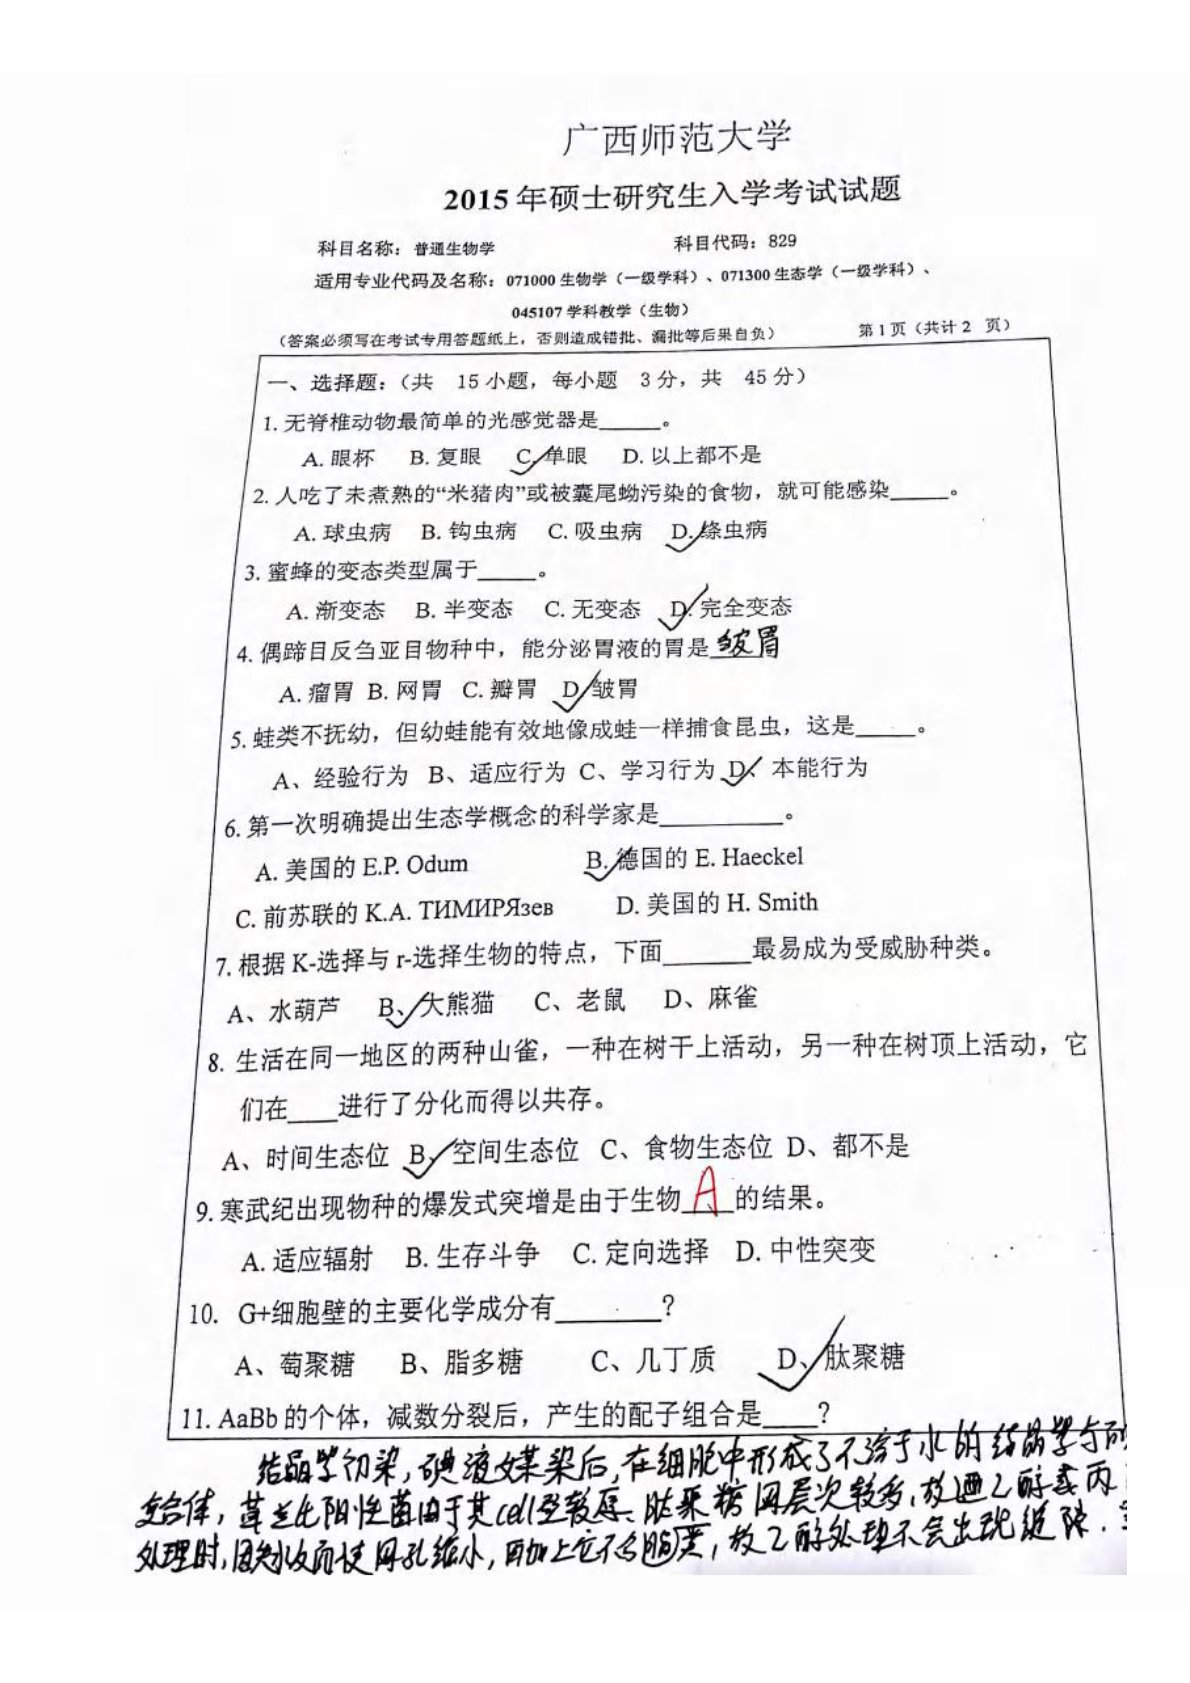 广西师范大学
2015年硕士研究生入学考试试题
科目名称：普通生物学 科目代码：829
适用专业代码及名称：071000生物学（一级学科）、071300生态学（一级学科）、
045107学科教学（生物）
（答案必须写在考试专用答题纸上，否则造成错批、漏批等后果自负） 第1页（共计2 页）
一、选择题：（共 15小题，每小题 3分，共 45分）
1. 无脊椎动物最简单的光感觉器是_____。
A. 眼杯 B. 复眼 C. 单眼 D. 以上都不是
2. 人吃了未煮熟的“米猪肉”或被囊尾蚴污染的食物，就可能感染_____。
A. 球虫病 B. 钩虫病 C. 吸虫病 D. 绦虫病
3. 蜜蜂的变态类型属于_____。
A. 渐变态 B. 半变态 C. 无变态 D. 完全变态
4. 偶蹄目反刍亚目物种中，能分泌胃液的胃是 皱胃
A. 瘤胃 B. 网胃 C. 瓣胃 D. 皱胃
5. 蛙类不抚幼，但幼蛙能有效地像成蛙一样捕食昆虫，这是_____。
A、经验行为 B、适应行为 C、学习行为 D、本能行为
6. 第一次明确提出生态学概念的科学家是__________。
A. 美国的 E.P. Odum B. 德国的 E. Haeckel
C. 前苏联的 K.A. ТИМИРЯзев D. 美国的 H. Smith
7. 根据 K-选择与 r-选择生物的特点，下面_______最易成为受威胁种类。
A、水葫芦 B、大熊猫 C、老鼠 D、麻雀
8. 生活在同一地区的两种山雀，一种在树干上活动，另一种在树顶上活动，它
们在____进行了分化而得以共存。
A、时间生态位 B、空间生态位 C、食物生态位 D、都不是
9. 寒武纪出现物种的爆发式突增是由于生物 A 的结果。
A. 适应辐射 B. 生存斗争 C. 定向选择 D. 中性突变
10. G+细胞壁的主要化学成分有________?
A、萄聚糖 B、脂多糖 C、几丁质 D、肽聚糖
11. AaBb的个体，减数分裂后，产生的配子组合是____?
结晶紫初染，碘液媒染后，在细胞中形成了不溶于水的结晶紫与碘
复合体，革兰氏阳性菌由于其cell壁较厚、肽聚糖网层次较多，故遇乙醇或丙
处理时，因失水反而使网孔缩小，再加上它不含脂类，故乙醇处理不会出现缝隙．